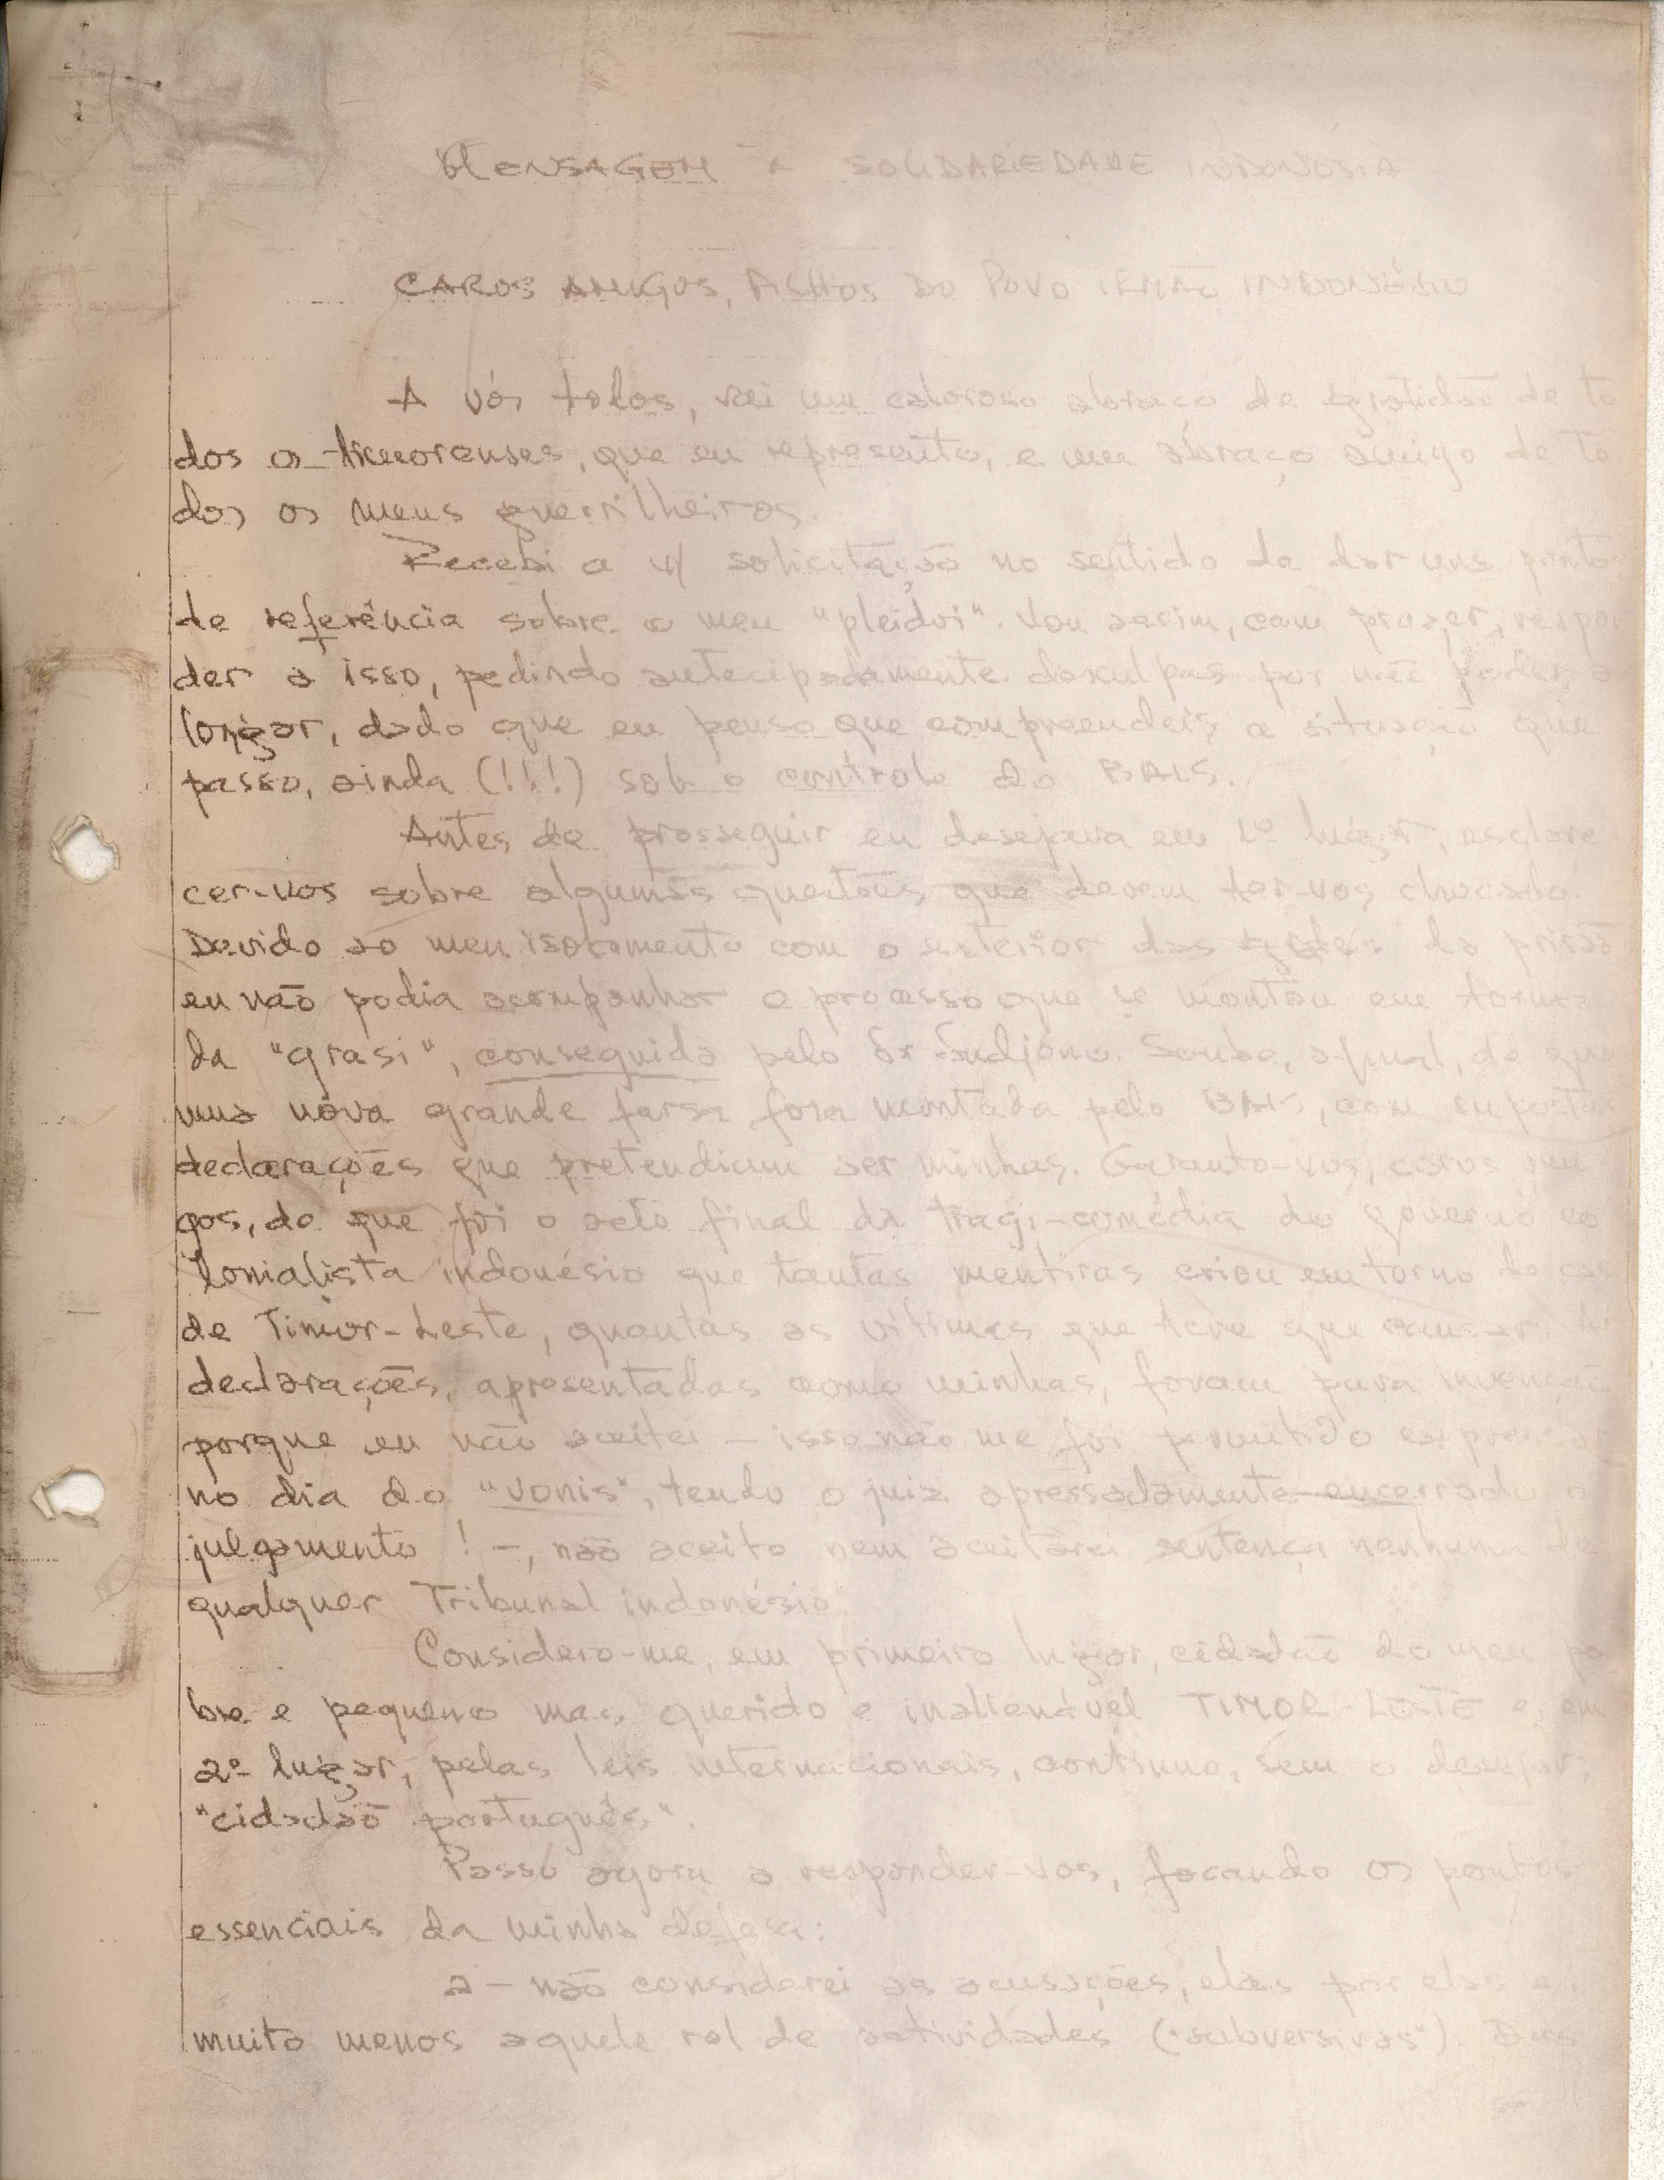 MENSAGEM À SOLIDARIEDADE INDONÉSIA
CAROS AMIGOS, FILHOS DO POVO IRMÃO INDONÉSIO
A vós todos, vai um caloroso abraço de gratidão de to
dos os timorenses, que eu represento, e um abraço amigo de to
dos os meus guerrilheiros.
Recebi a v/ solicitação no sentido de dar uns pontos
de referência sobre o meu "pleidoi". Vou assim, com prazer, respon
der a isso, pedindo antecipadamente desculpas por não poder a
longar, dado que eu penso que compreendeis a situação que
passo, ainda (!!!) sob o controlo do BAIS.
Antes de prosseguir eu desejava em 1º lugar, esclare
cer-vos sobre algumas questões que devem ter-vos chocado.
Devido ao meu isolamento com o exterior das grades da prisão
eu não podia acompanhar o processo que se montou em torno
da "grasi", conseguida pelo Sr Sudjono. Soube, afinal, de que
uma nova grande farsa fora montada pelo BAIS, com
declarações que pretendiam ser minhas. Garanto-vos, caros ami
gos, de que foi o acto final da tragi-comédia do governo co
lonialista indonésio que tantas mentiras criou em torno do caso
de Timor-Leste, quantas as vítimas que teve que causar.
declarações, apresentadas como minhas, foram pura invenção
porque eu não aceitei - isso não me foi permitido expressar
no dia do "vonis", tendo o juiz apressadamente encerrado o
julgamento! -, não aceito nem aceitarei sentença nenhuma de
qualquer Tribunal indonésio.
Considero-me, em primeiro lugar, cidadão do meu po
bre e pequeno mas querido e inalienável TIMOR-LESTE e, em
2º lugar, pelas leis internacionais, continuo, sem o desejar,
"cidadão português".
Passo agora a responder-vos, focando os pontos
essenciais da minha defesa:
a - não considerei as acusações, elas por elas e
muito menos aquele rol de actividades ("subversivas").